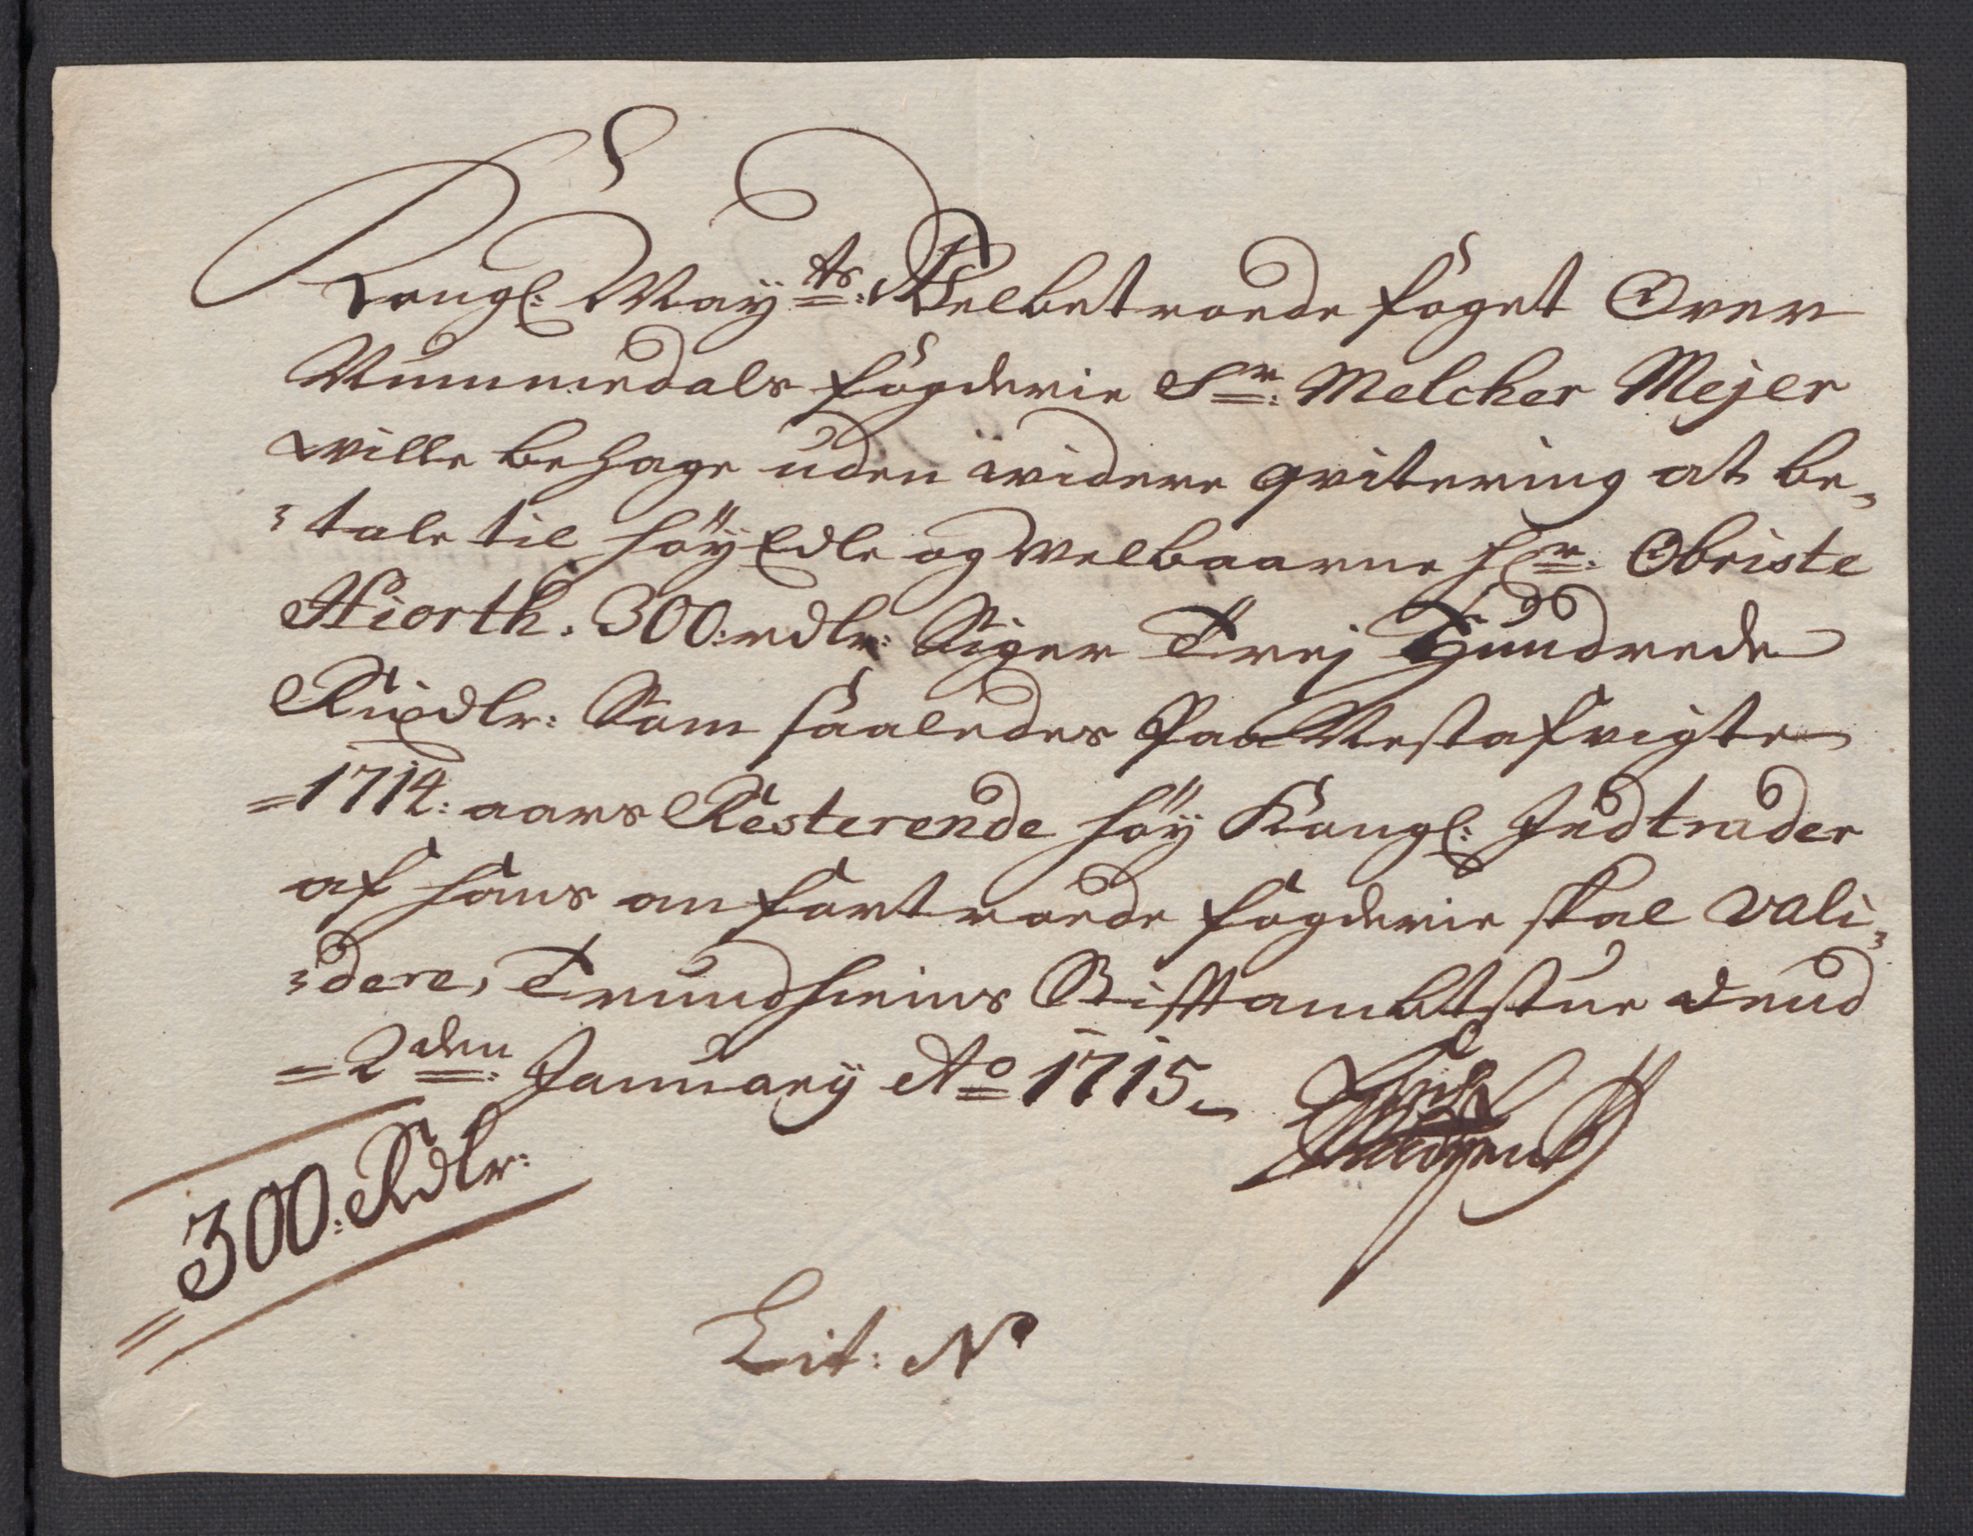 Kongl: May:ts Velbetroede foget Over
Nummedals fogderie Sr: Melcher Mejer
ville behage uden widere qvitering at be-
tale til höyEdle og Velbaarne Hr: Obriste
Hiorth. 300: rdlr: Siger Trej Hundrede
Rixdlr: Som saaledes paa Nestafvigte
1714: aars Resterende höy Kongl: Indtrader
af hans anfortroede fogderie skal vali-
dere, Trundhiems Stiftambtstue dend
2den: January Ao 1715
300: Rdlr:
Lit: N